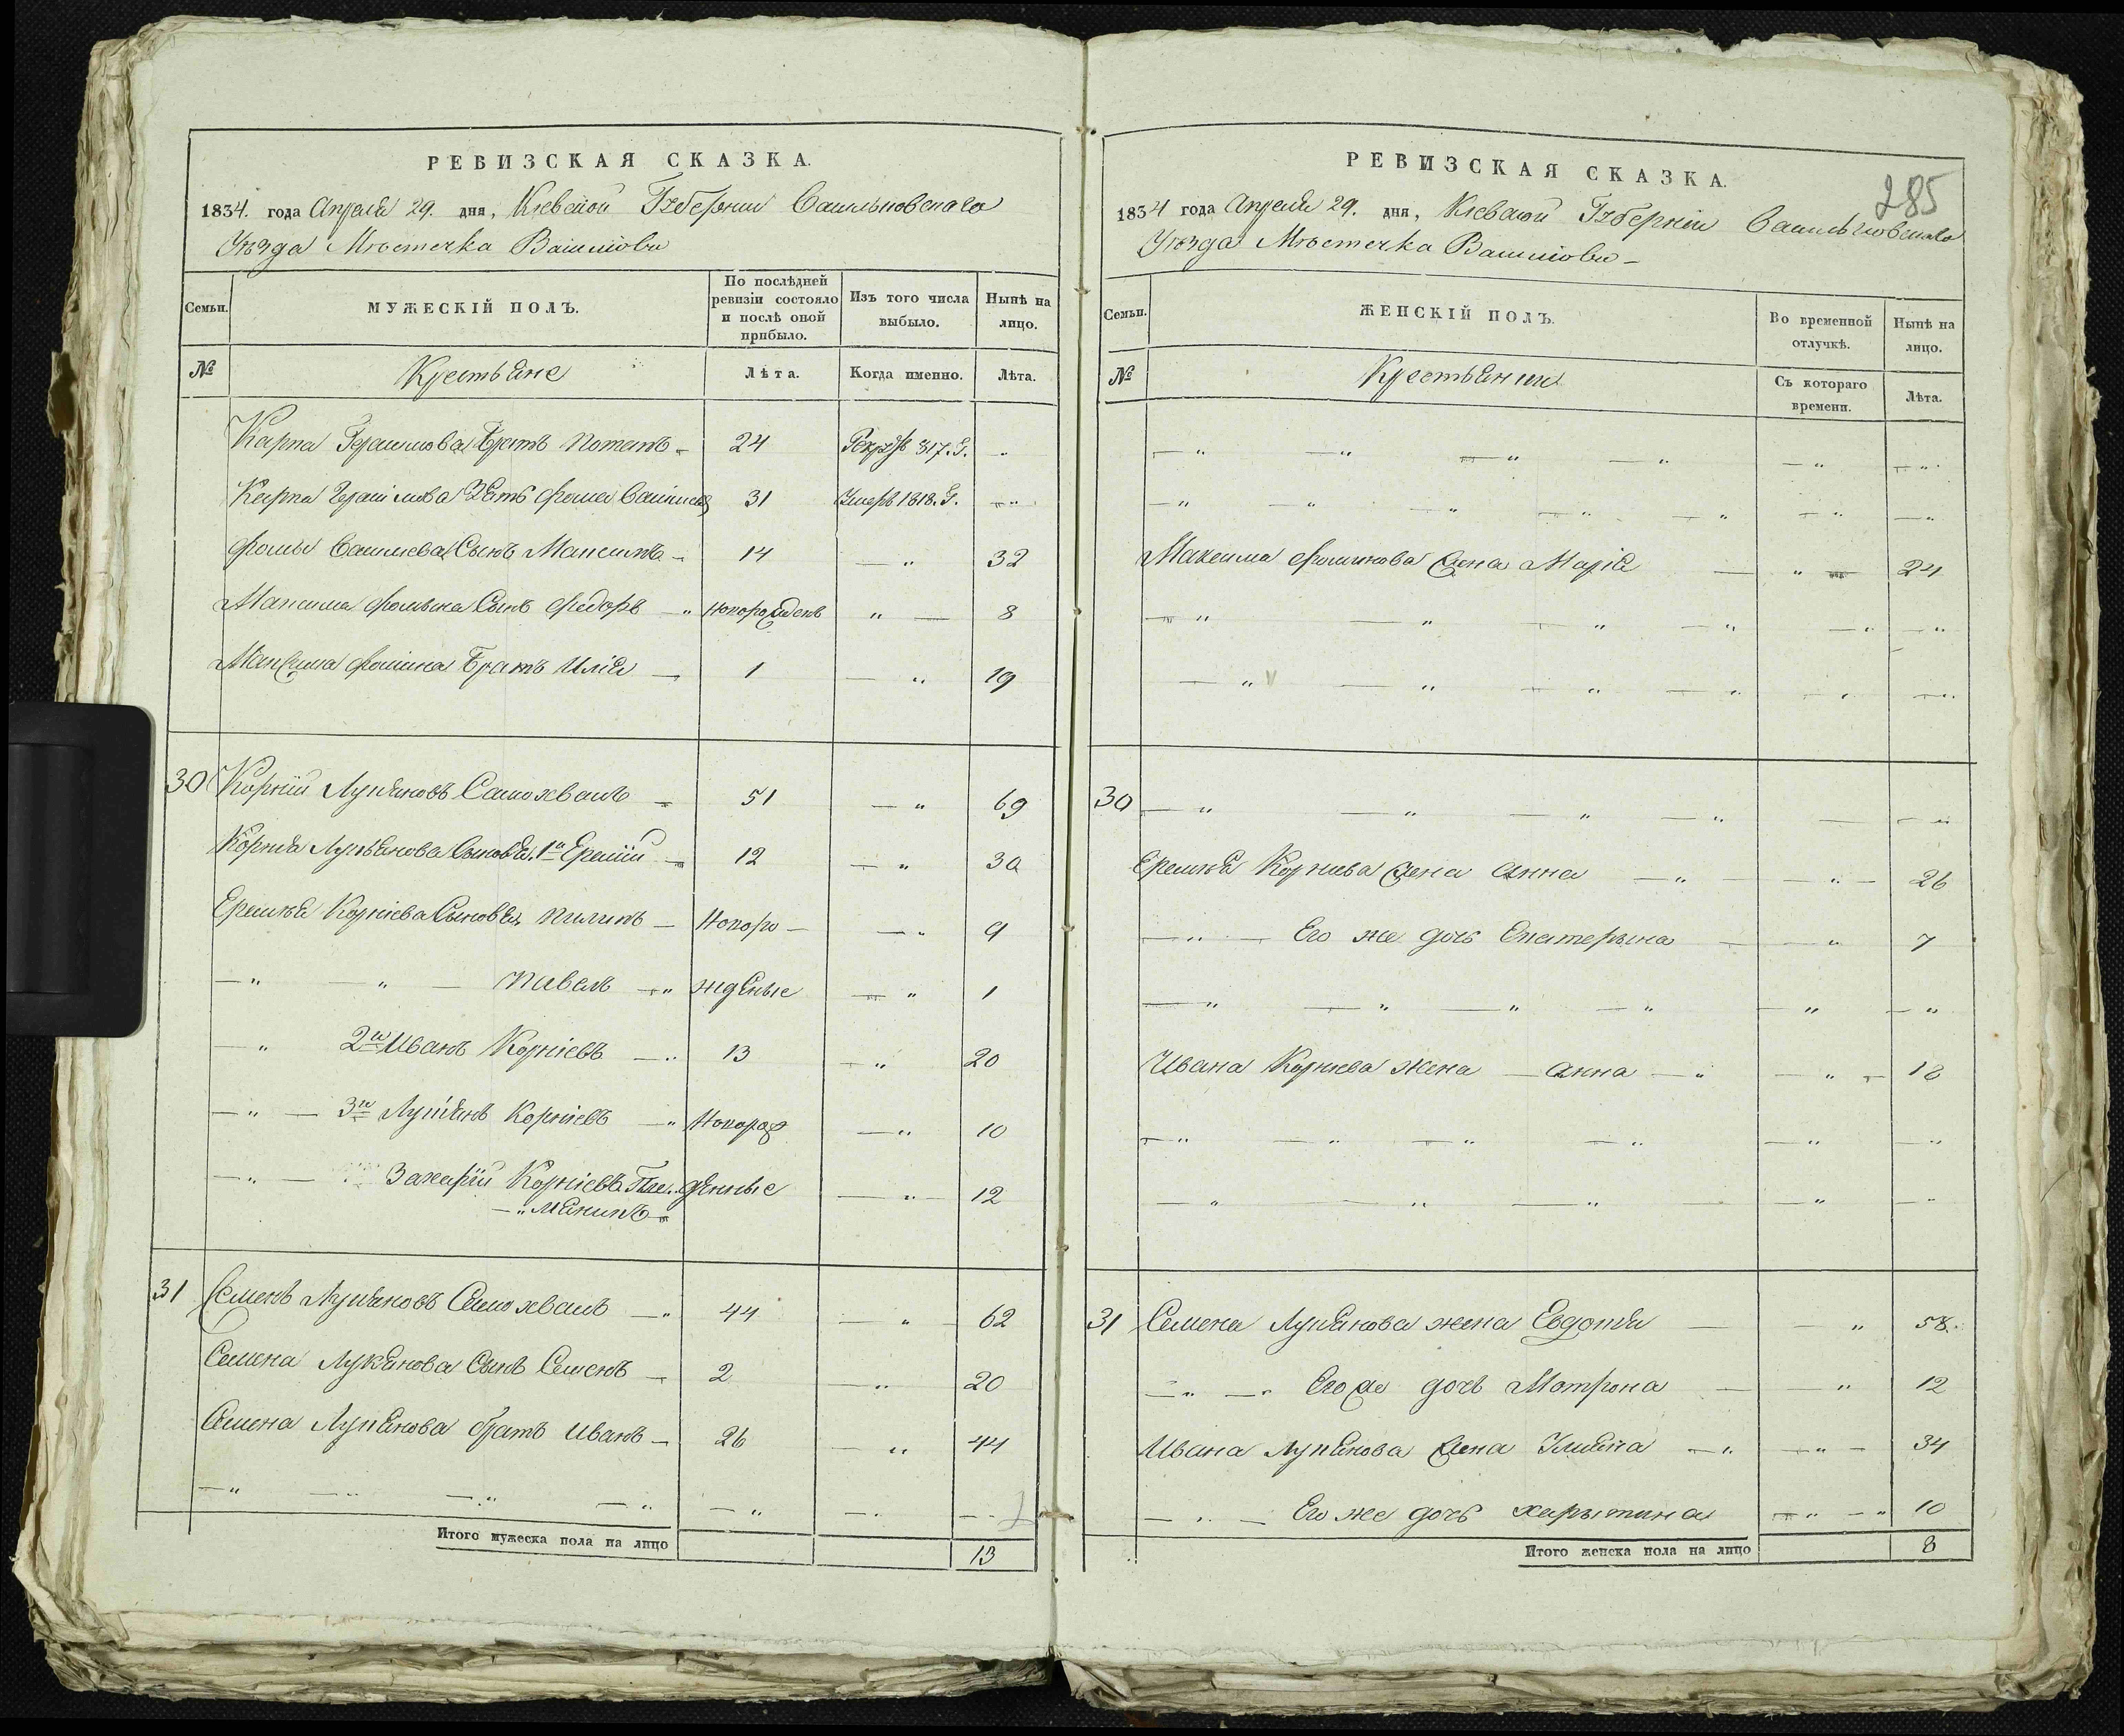 РЕВИЗСКАЯ СКАЗКА.
1834. года Апреля 29. дня, Кіевской Губернии Васильковскаго
Уѣзда Мѣстечка
Семьи.
МУЖЕСКІЙ ПОЛЪ.
По послѣдней ревизіи состояло и послѣ оной прибыло.
Изъ того числа выбыло.
Нынѣ на лицо.
№
Крестьяне
Лѣта.
Когда именно.
Лѣта.
Карпа Герасимова Братъ Потапъ 24 817.Г.
Карпа Герасимова Зять Фома 31 Умеръ 1818.Г.
Фомы Сынъ Максимъ 14 — " 32
Максима Фомина Сынъ Федоръ — " новорожденъ " — 8
Максима Фомина Братъ Илія — 1 — " 19
30 Корній Лукяновъ Самохвалъ — 51 — " 69
Корнія Лукьянова Сыновья, 1й Еремій — 12 — " 30
Еремія Корніева Сыновья, Пилипъ — Новоро— — " 9
— " — " — Павелъ — " жденые — " 1
— " 2й Иванъ Корніевъ — " 13 — " 20
— " — 3й Лукянъ Корніевъ — " Новорож — " 10
— " — Захарій Корніевъ Пле.. денные — " — 12
— " мяникъ —
31 Семенъ Лукяновъ Самохвалъ — " 44 — " — 62
Семена Лукянова Сынъ Семенъ — 2 — " 20
Семена Лукянова братъ Иванъ — 26 — " 44
— " — " — " — " — " — " — "
Итого мужеска пола на лицо 13
РЕВИЗСКАЯ СКАЗКА.
285
1834 года Апреля 29. дня, Кіевской Губерніи Васильковскаго
Уѣзда Мѣстечка
Семьи.
ЖЕНСКІЙ ПОЛЪ.
Во временной отлучкѣ.
Нынѣ на лицо.
№
Крестьянки
Съ котораго времени.
Лѣта.
— " — " — " — " — " — "
— " — " — " — " — " — " — "
Максима жена Марія — " — 24
— " — " — " — " — " — "
— " — " — " — " — " — "
30 — " — " — " — " — — "
Еремія Корнева жена Анна — " — — " — 26
— " — Его же дочь Екатерына — — " 7
— " — " — " — " — " — "
Ивана Корнева жена — Анна — " — " — 18
— " — " — " — " — " — "
— " — " — " — — " — "
31 Семена Лукянова жена Евдокія — — " 58.
— " — " Его же дочь Мотрона — — " 12
Ивана Лукянова жена — " — " — 34
— " — Его же дочь Харытина — " — " 10
Итого женска пола на лицо 8